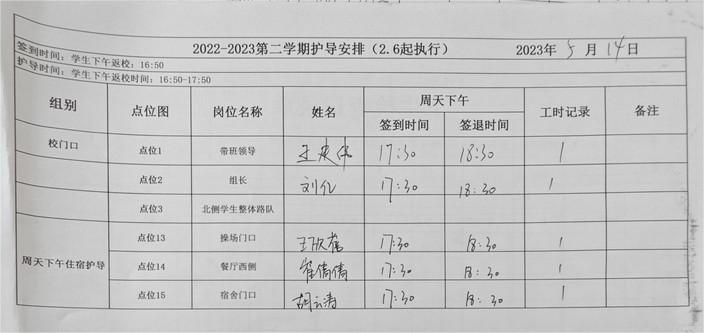 2022-2023第二学期护导安排（2.6起执行） 2023年 5 月 14 日
签到时间：学生下午返校：16:50
护导时间：学生下午返校时间：16:50-17:50
组别 点位图 岗位名称 姓名 周天下午 工时记录 备注
签到时间 签退时间
校门口 点位1 带班领导 17:30 18:30 1
点位2 组长 17:30 18:30 1
点位3 北侧学生整体路队
周天下午住宿护导 点位13 操场门口 17:30 18:30 1
点位14 餐厅西侧 崔倩倩 17:30 18:30 1
点位15 宿舍门口 17:30 18:30 1